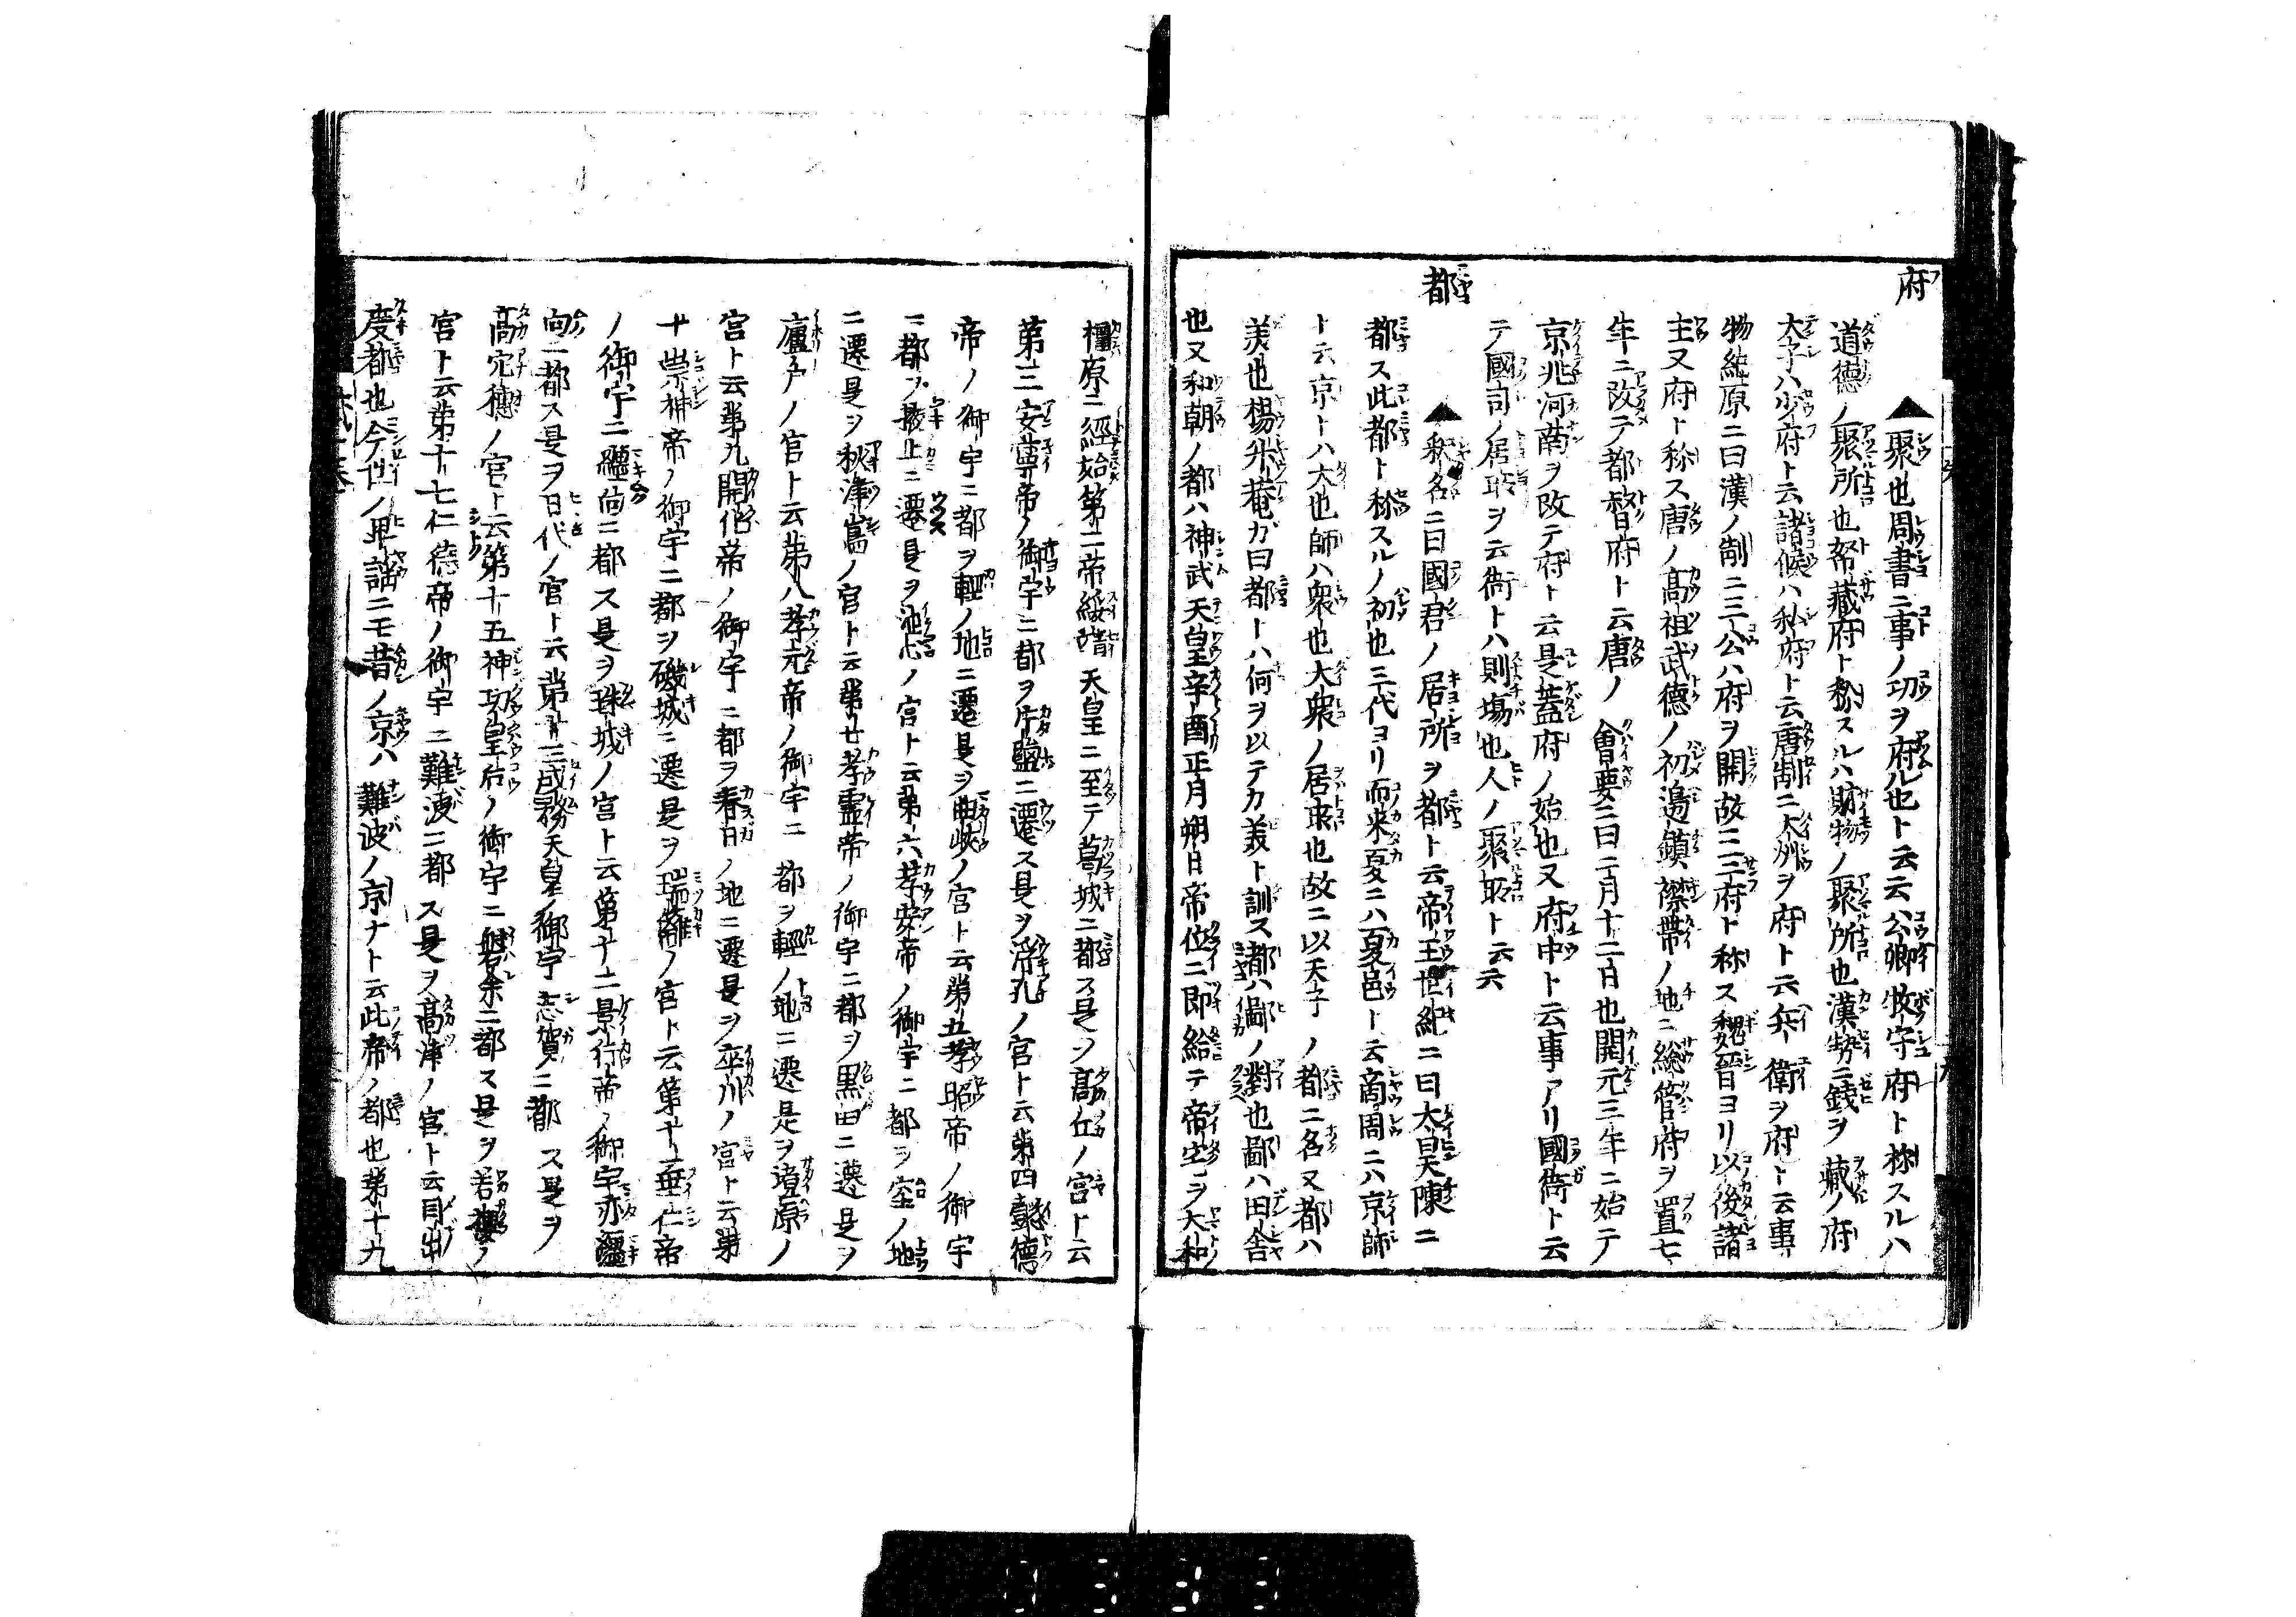 府
▲聚也周書ニ事ノ功ヲ府ル也ト云云公卿牧守府ト称スルハ
道徳ノ聚所也帑藏府ト称スルハ財物ノ聚所也漢ニ銭ヲ藏ノ府
太子ハ少府ト云諸候ハ私府ト云唐制ニ大州ヲ府ト云兵衛ヲ府ト云事
物紀原ニ曰漢ノ制ニ三公ハ府ヲ開故ニ三府ト称ス魏晉ヨリ以後諸
主又府ト称ス唐ノ高祖武徳ノ初邉鎮襟帯ノ地ニ総管府ヲ置七
年ニ改テ都督府ト云唐ノ會要ニ曰二月十二日也開元三年ニ始テ
京兆河南ヲ改テ府ト云是蓋府ノ始也又府中ト云事アリ國衙ト云
テ國司ノ居所ヲ云衙トハ則場也人ノ聚所ト云云
都
▲釈名ニ曰國君ノ居所ヲ都ト云帝王世紀ニ曰大昊陳ニ
都ス此都ト称スルノ初也三代ヨリ而来夏ニハ夏邑ト云商周ニハ京師
ト云京トハ大也師ハ衆也大衆ノ居所也故ニ以天子ノ都ニ名又都ハ
美也楊升菴ガ曰都トハ何ヲ以テカ美ト訓ス都ハ鄙ノ對也鄙ハ田舎
也又和朝ノ都ハ神武天皇辛酉正月朔日帝位ニ即給テ帝宅ヲ大和
橿原ニ經始第二帝綏靖天皇ニ至テ葛城ニ都ス是ヲ高丘ノ宮ト云
第三安寧帝ノ御宇ニ都ヲ片鹽ニ遷ス是ヲ浮孔ノ宮ト云第四懿徳
帝ノ御宇ニ都ヲ輕ノ地ニ遷是ヲ曲峽ノ宮ト云第五孝昭帝ノ御宇
ニ都ヲ掖上ニ遷是ヲ池心ノ宮ト云第六孝安帝ノ御宇ニ都ヲ室ノ地
ニ遷是ヲ秋津嶌ノ宮ト云第七孝霊帝ノ御宇ニ都ヲ黒田ニ遷是ヲ
廬戸ノ宮ト云第八孝元帝ノ御宇ニ都ヲ輕ノ地ニ遷是ヲ境原ノ
宮ト云第九開化帝ノ御宇ニ都ヲ春日ノ地ニ遷是ヲ率川ノ宮ト云第
十崇神帝ノ御宇ニ都ヲ磯城ニ遷是ヲ瑞籬ノ宮ト云第十一垂仁帝
ノ御宇ニ纏向ニ都ス是ヲ珠城ノ宮ト云第十二景行帝ノ御宇亦纏
向ニ都ス是ヲ日代ノ宮ト云第十三成務天皇ノ御宇志賀ニ都ス是ヲ
高穴穗ノ宮ト云第十五神功皇后ノ御宇ニ磐余ニ都ス是ヲ若櫻ノ
宮ト云第十七仁徳帝ノ御宇ニ難波ニ都ス是ヲ高津ノ宮ト云目出
度都也今世ノ卑謡ニモ昔ノ京ハ難波ノ京ナト云此帝ノ都也第十九